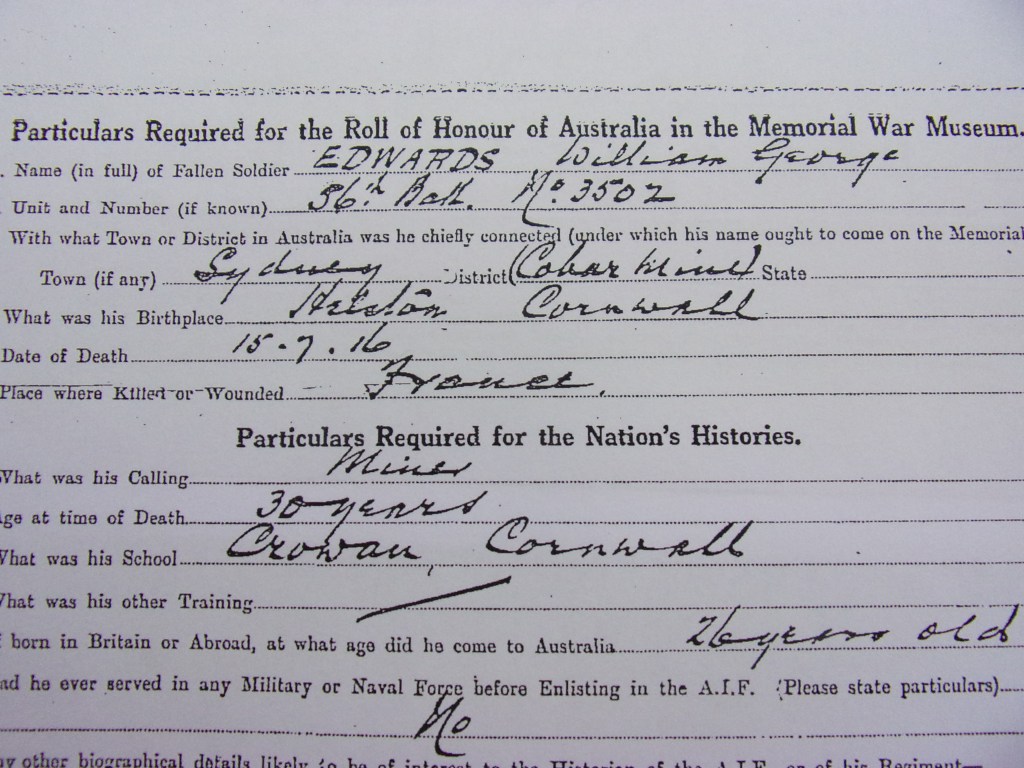 Particulars Required for the Roll of Honour of Australia in the Memorial War Museum.
. Name (in full) of Fallen Soldier EDWARDS William George
Unit and Number (if known) 56th Batt. No. 3502
With what Town or District in Australia was he chiefly connected (under which his name ought to come on the Memorial
Town (if any) Sydney District (Cobar Mines State
What was his Birthplace Helston Cornwall
Date of Death 15.7.16
Place where Killed or Wounded France.
Particulars Required for the Nation's Histories.
What was his Calling Miner
ge at time of Death 30 years
What was his School Crowan, Cornwall
What was his other Training
born in Britain or Abroad, at what age did he come to Australia 26 years old
ad he ever served in any Military or Naval Force before Enlisting in the A.I.F. (Please state particulars)
No
ny other biographical details likely to be of interest to the Historian of the A.I.F. or of his Regiment—